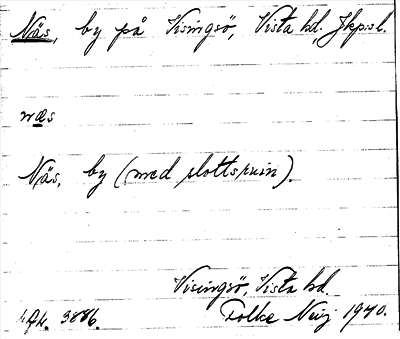 Näs, by på Visingsö, Vista hd, Jkpsl.
næs
Näs, by (med slottsruin).
Visingsö, Vista hd.
Folke Neij 1940.
3886.